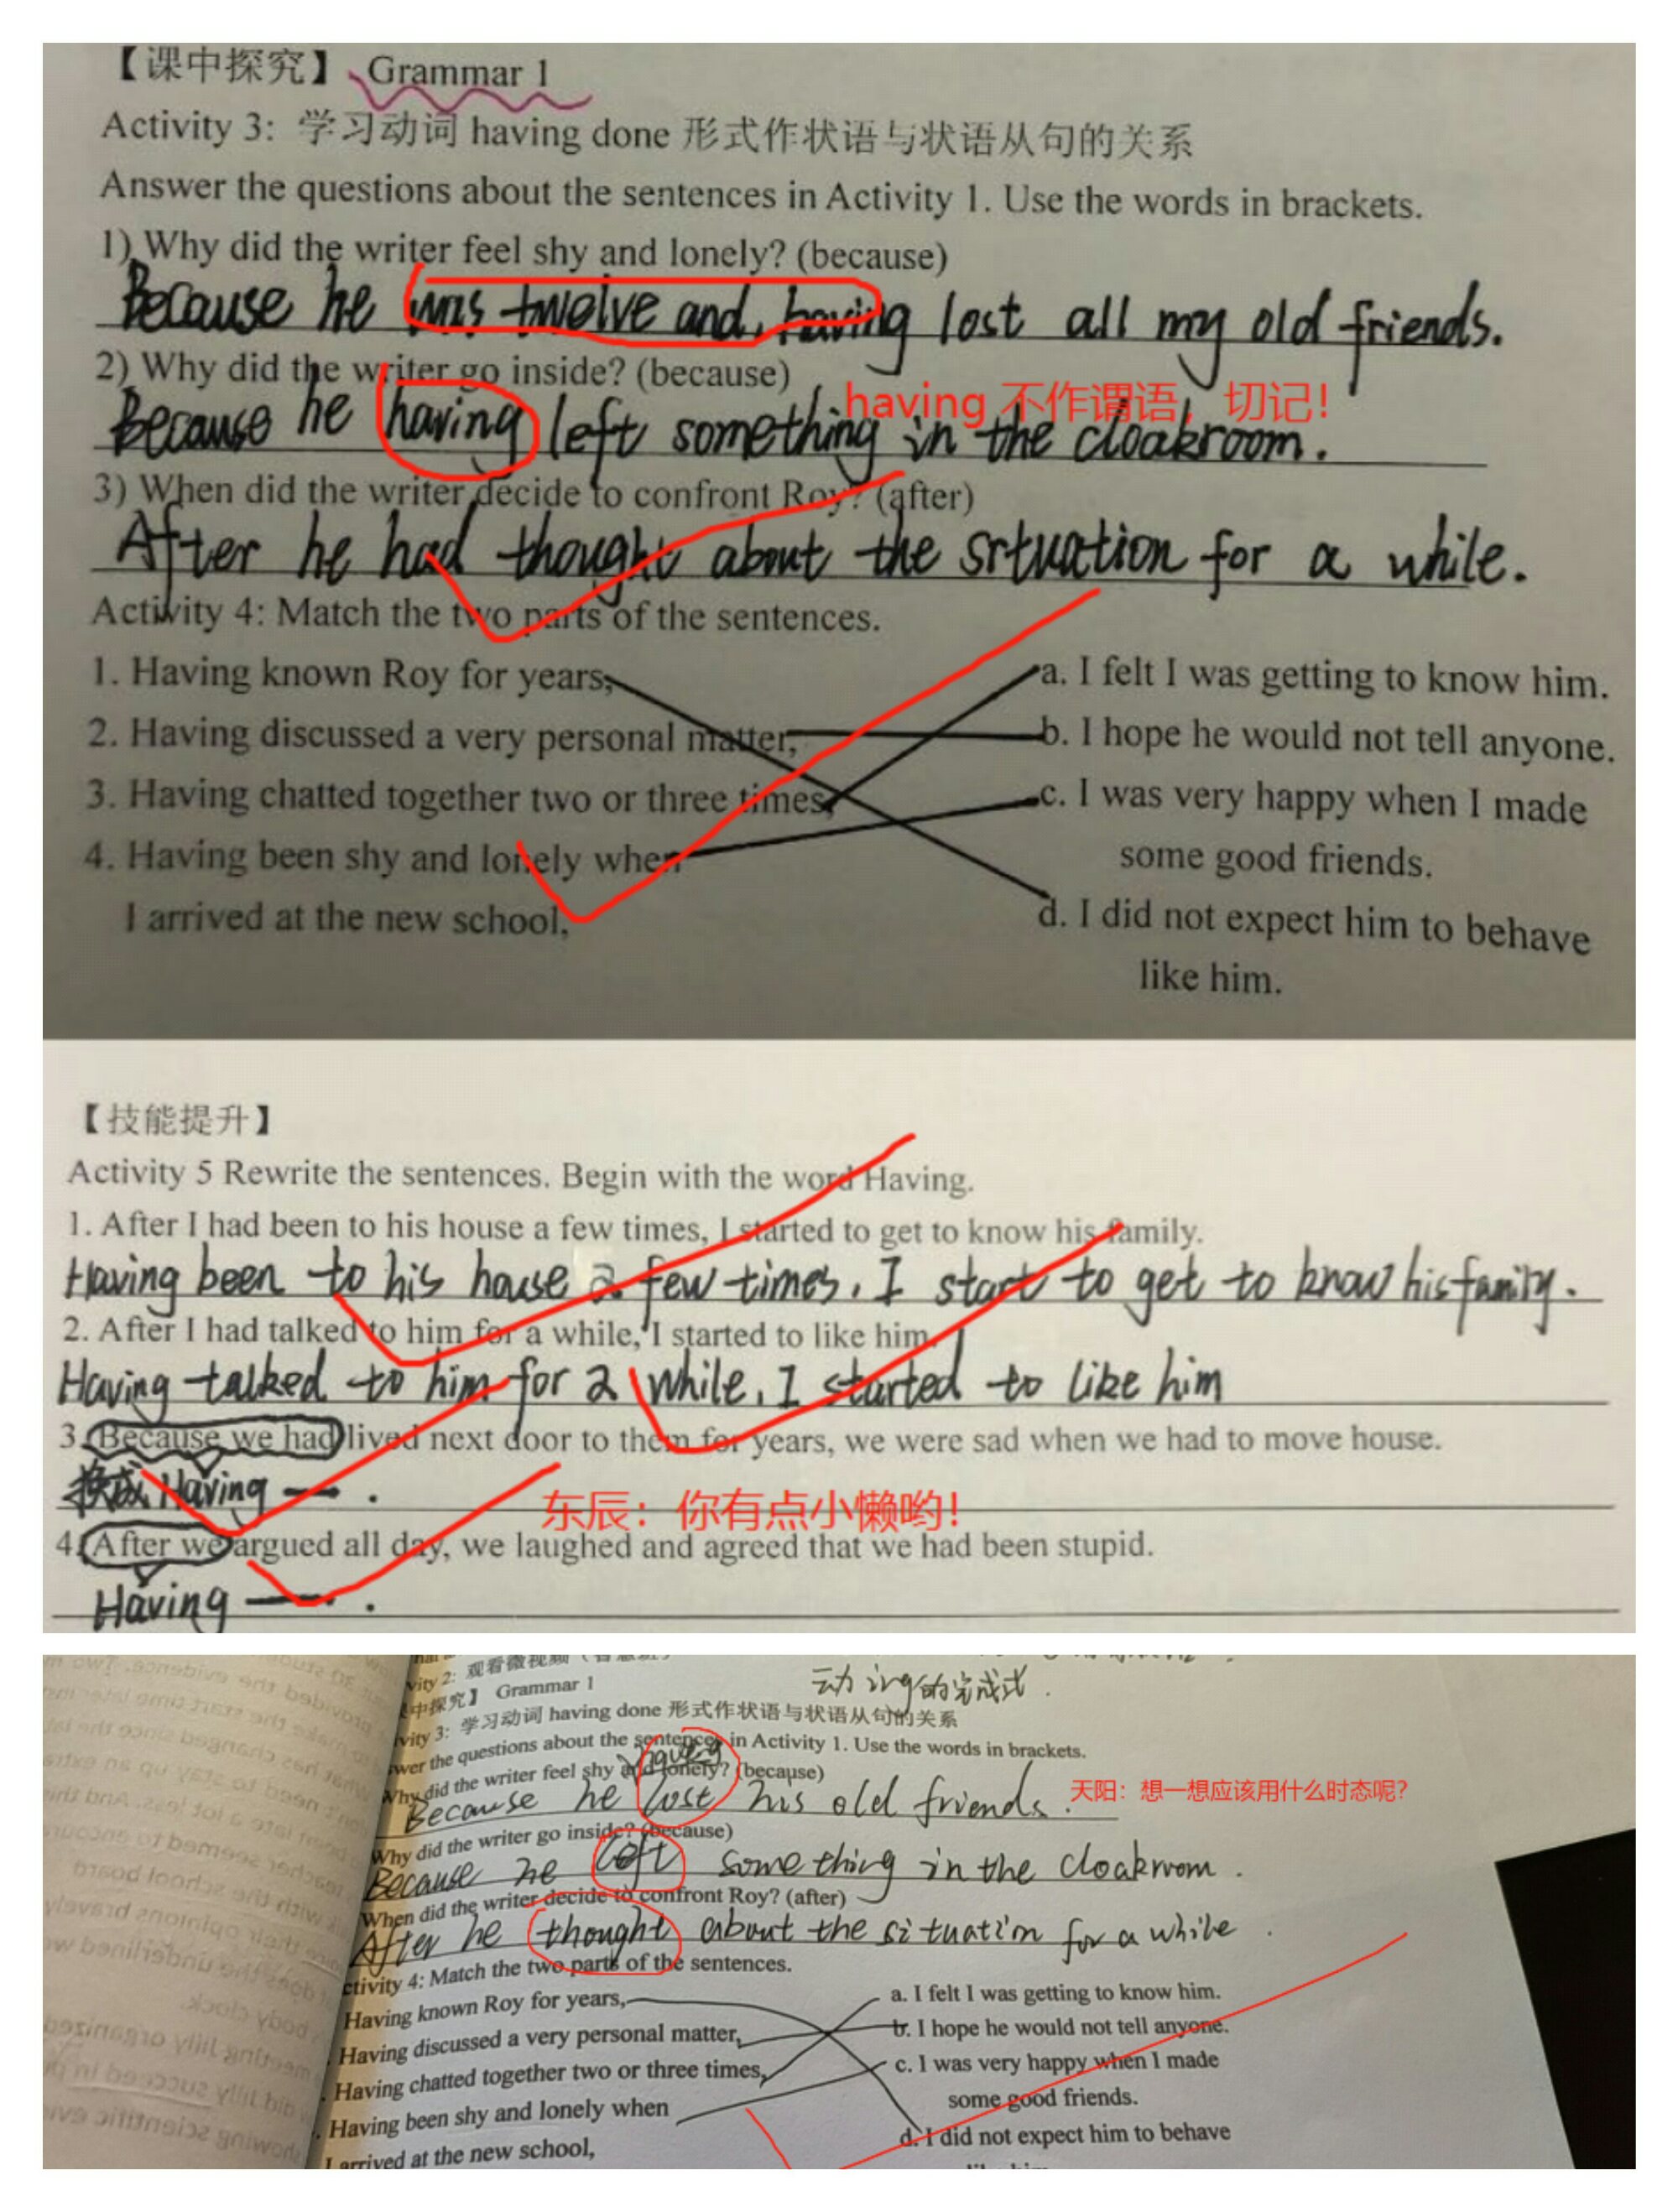 【课中探究】 Grammar 1
Activity 3: 学习动词 having done 形式作状语与状语从句的关系
Answer the questions about the sentences in Activity 1. Use the words in brackets.
1) Why did the writer feel shy and lonely? (because)
Because he was twelve and, having lost all my old friends.
2) Why did the writer go inside? (because)
having 不作谓语，切记！
Because he having left something in the cloakroom.
3) When did the writer decide to confront Roy? (after)
After he had thought about the srtuation for a while.
Activity 4: Match the two parts of the sentences.
1. Having known Roy for years,
a. I felt I was getting to know him.
2. Having discussed a very personal matter,
b. I hope he would not tell anyone.
3. Having chatted together two or three times,
c. I was very happy when I made
4. Having been shy and lonely when
some good friends.
I arrived at the new school,
d. I did not expect him to behave
like him.
【技能提升】
Activity 5 Rewrite the sentences. Begin with the word Having.
1. After I had been to his house a few times, I started to get to know his family.
Having been to his house a few times, I start to get to know his family.
2. After I had talked to him for a while, I started to like him.
Having talked to him for a while, I started to like him
3. Because we had lived next door to them for years, we were sad when we had to move house.
换成 Having — .
东辰：你有点小懒哟！
4. After we argued all day, we laughed and agreed that we had been stupid.
Having — .
vity 2: 观看微视频
动ing的完成式.
中探究】 Grammar 1
vity 3: 学习动词 having done 形式作状语与状语从句的关系
wer the questions about the sentences in Activity 1. Use the words in brackets.
Why did the writer feel shy and lonely? (because)
having
Because he lost his old friends.
天阳：想一想应该用什么时态呢？
Why did the writer go inside? (because)
Because he left something in the cloakroom.
When did the writer decide to confront Roy? (after)
After he thought about the situation for a while.
ctivity 4: Match the two parts of the sentences.
Having known Roy for years,
a. I felt I was getting to know him.
. Having discussed a very personal matter,
b. I hope he would not tell anyone.
. Having chatted together two or three times,
c. I was very happy when I made
. Having been shy and lonely when
some good friends.
I arrived at the new school,
d. I did not expect him to behave